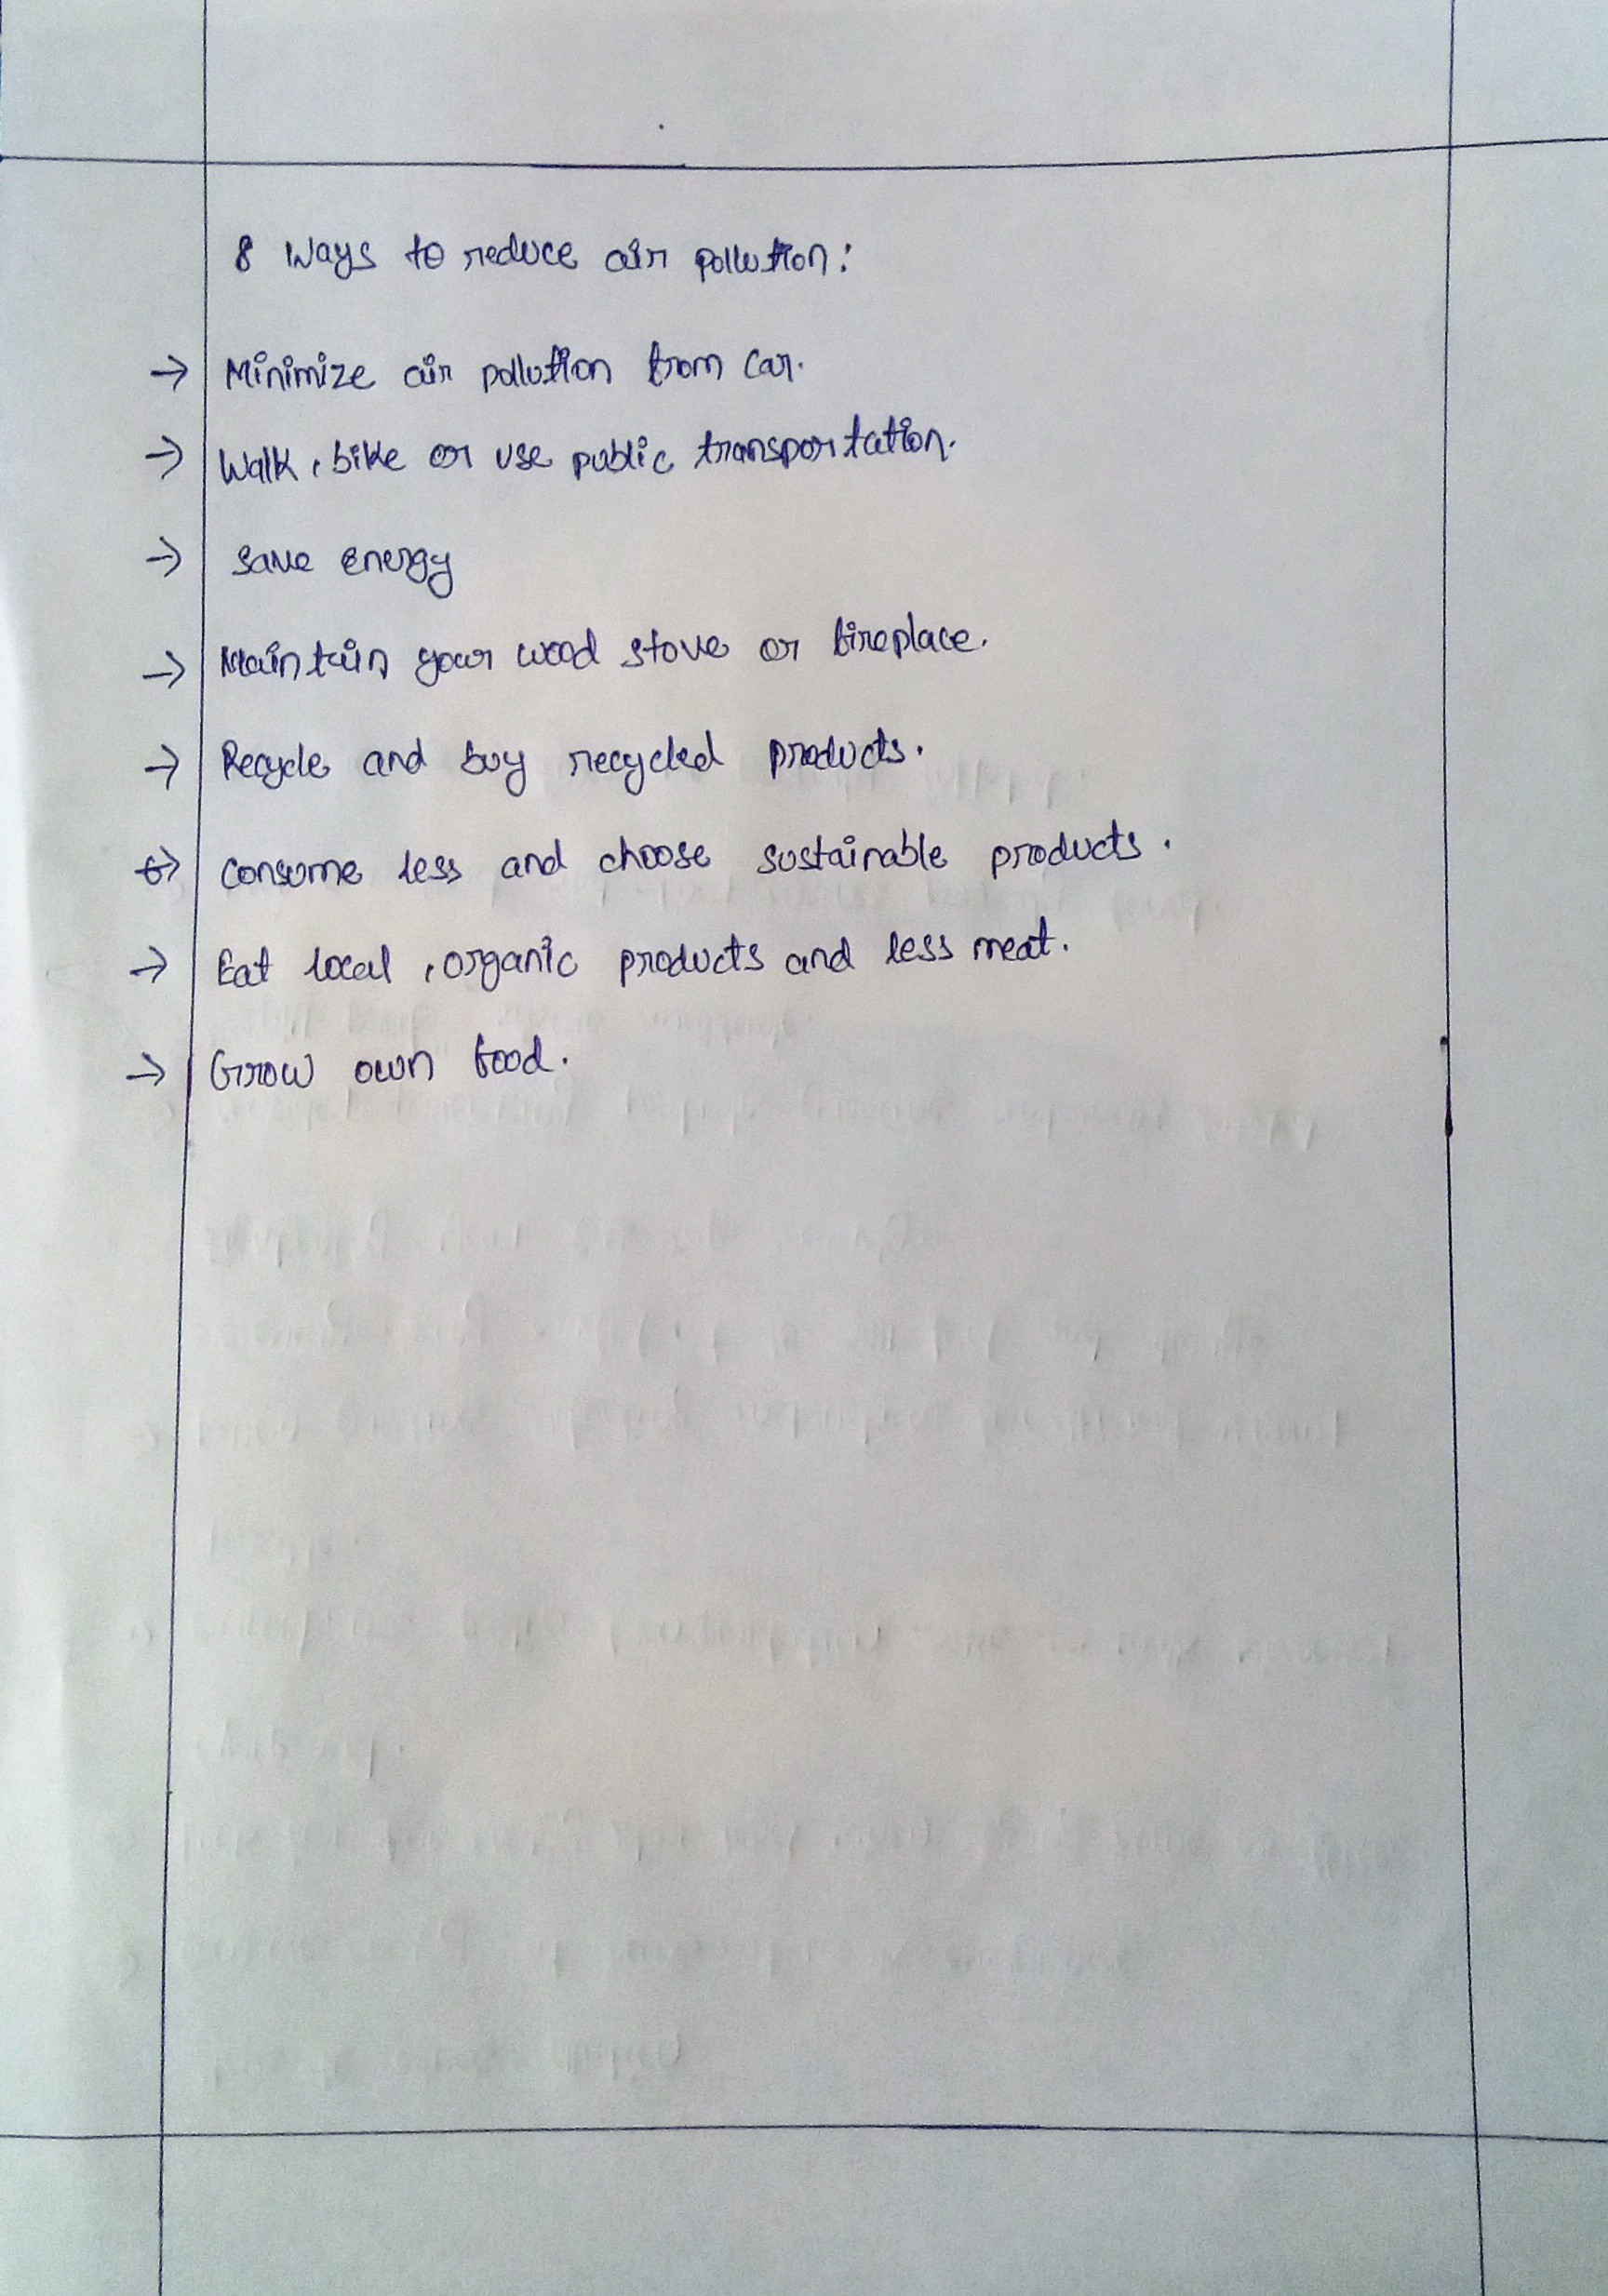 8 Ways to reduce air pollution:
→ Minimize air pollution from car.
→ Walk, bike or use public transportation.
→ Save energy
→ Maintain your wood stove or fireplace.
→ Recycle and buy recycled products.
→ Consume less and choose sustainable products.
→ Eat local, organic products and less meat.
→ Grow own food.